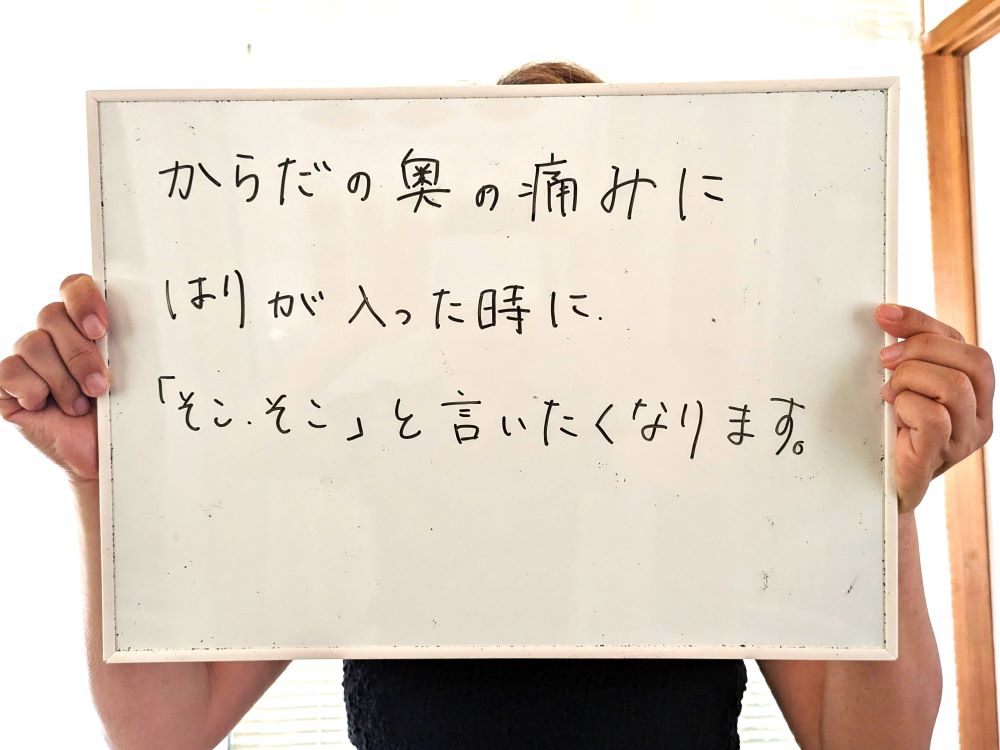 からだの奥の痛みに
はりが入った時に.
「そこ.そこ」と言いたくなります。